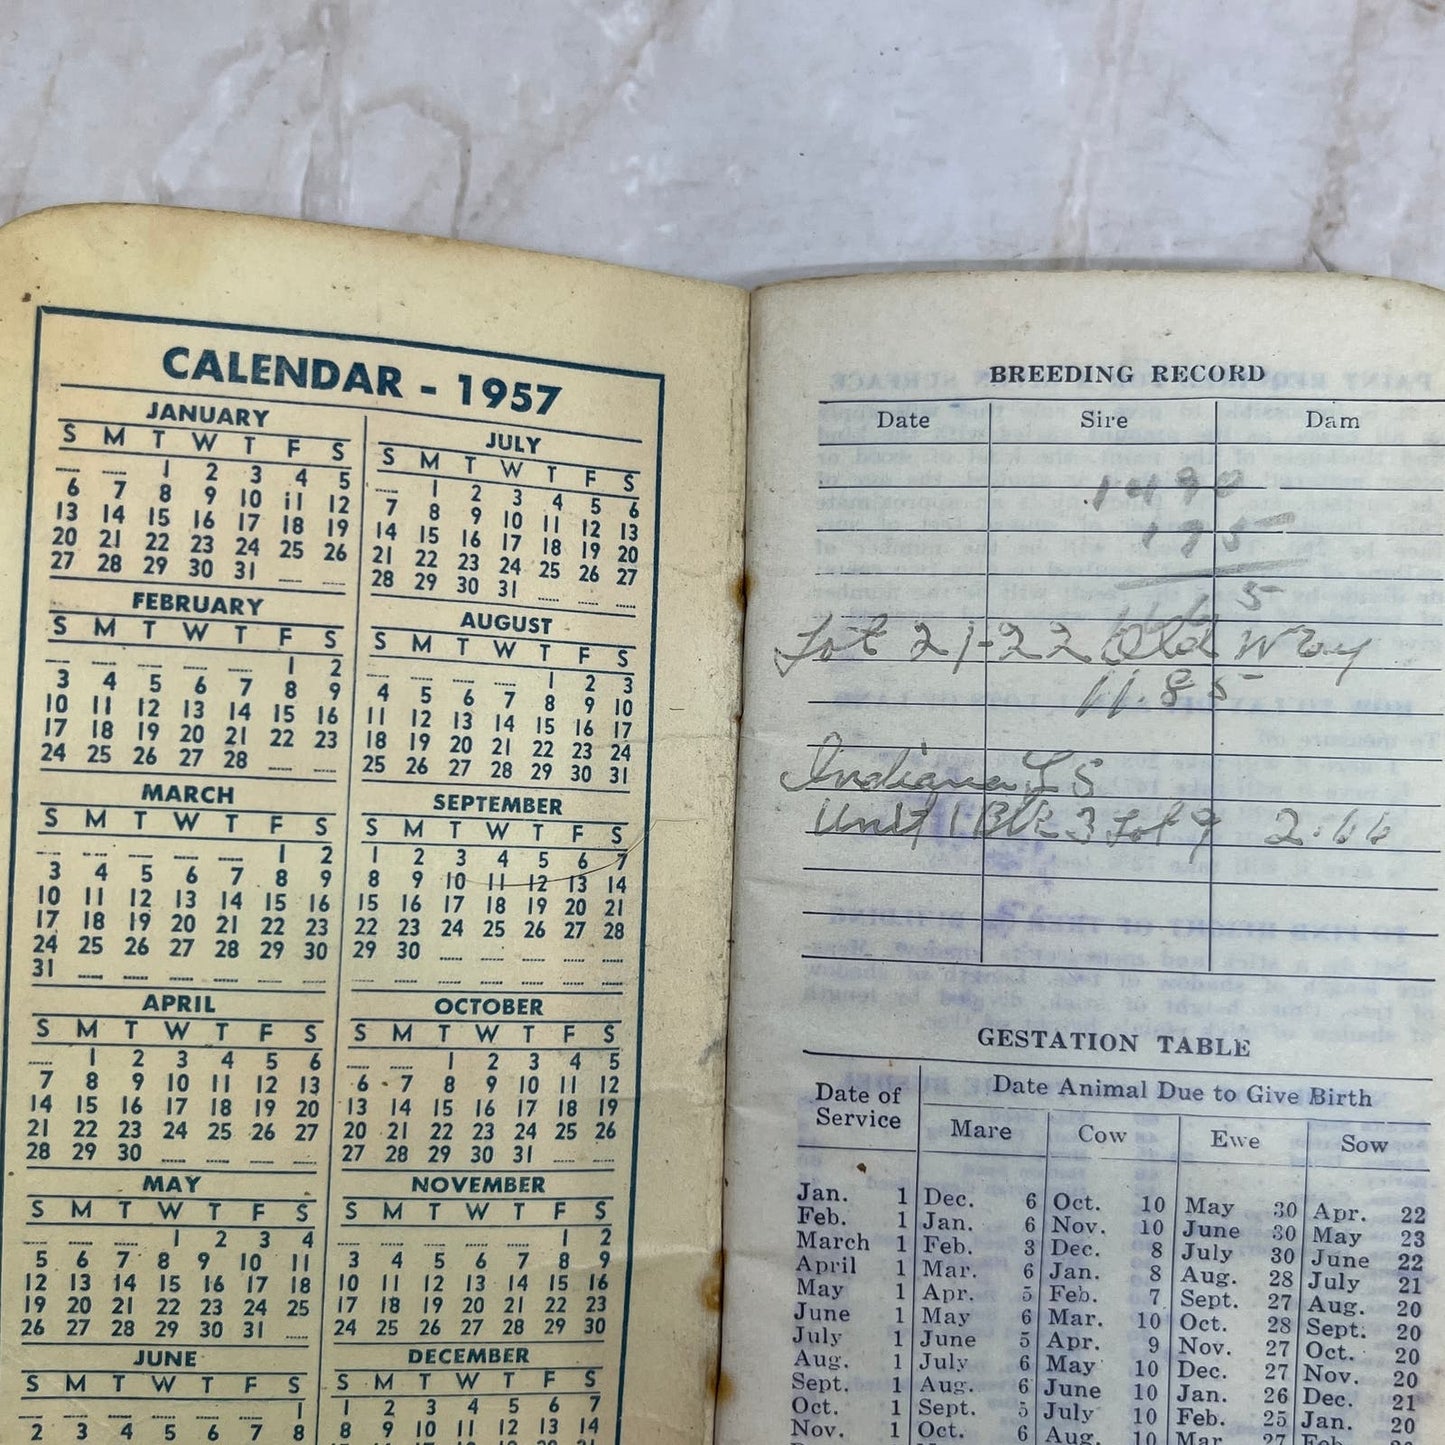 CALENDAR - 1957
JANUARY
S M T W T F S
1 2 3 4 5
6 7 8 9 10 11 12
13 14 15 16 17 18 19
20 21 22 23 24 25 26
27 28 29 30 31
FEBRUARY
S M T W T F S
1 2
3 4 5 6 7 8 9
10 11 12 13 14 15 16
17 18 19 20 21 22 23
24 25 26 27 28
MARCH
S M T W T F S
1 2
3 4 5 6 7 8 9
10 11 12 13 14 15 16
17 18 19 20 21 22 23
24 25 26 27 28 29 30
31
APRIL
S M T W T F S
1 2 3 4 5 6
7 8 9 10 11 12 13
14 15 16 17 18 19 20
21 22 23 24 25 26 27
28 29 30
MAY
S M T W T F S
1 2 3 4
5 6 7 8 9 10 11
12 13 14 15 16 17 18
19 20 21 22 23 24 25
26 27 28 29 30 31
JUNE
S M T W T F S
1
2 3 4 5 6 7 8
JULY
S M T W T F S
1 2 3 4 5 6
7 8 9 10 11 12 13
14 15 16 17 18 19 20
21 22 23 24 25 26 27
28 29 30 31
AUGUST
S M T W T F S
1 2 3
4 5 6 7 8 9 10
11 12 13 14 15 16 17
18 19 20 21 22 23 24
25 26 27 28 29 30 31
SEPTEMBER
S M T W T F S
1 2 3 4 5 6 7
8 9 10 11 12 13 14
15 16 17 18 19 20 21
22 23 24 25 26 27 28
29 30
OCTOBER
S M T W T F S
1 2 3 4 5
6 7 8 9 10 11 12
13 14 15 16 17 18 19
20 21 22 23 24 25 26
27 28 29 30 31
NOVEMBER
S M T W T F S
1 2
3 4 5 6 7 8 9
10 11 12 13 14 15 16
17 18 19 20 21 22 23
24 25 26 27 28 29 30
DECEMBER
S M T W T F S
1 2 3 4 5 6 7
8 9 10 11 12 13 14
BREEDING RECORD
Date Sire Dam
1490
Lot 21-22 Old Way
11.85
Indiana LS
Unit 1 Blk 3 Lot 9 2.66
GESTATION TABLE
Date of Service Date Animal Due to Give Birth
Mare Cow Ewe Sow
Jan. 1 Dec. 6 Oct. 10 May 30 Apr. 22
Feb. 1 Jan. 6 Nov. 10 June 30 May 23
March 1 Feb. 3 Dec. 8 July 30 June 22
April 1 Mar. 6 Jan. 8 Aug. 28 July 21
May 1 Apr. 5 Feb. 7 Sept. 27 Aug. 20
June 1 May 6 Mar. 10 Oct. 28 Sept. 20
July 1 June 5 Apr. 9 Nov. 27 Oct. 20
Aug. 1 July 6 May 10 Dec. 27 Nov. 20
Sept. 1 Aug. 6 June 10 Jan. 26 Dec. 21
Oct. 1 Sept. 5 July 10 Feb. 25 Jan. 20
Nov. 1 Oct. 6 Aug. 10 Mar. 27 Feb.